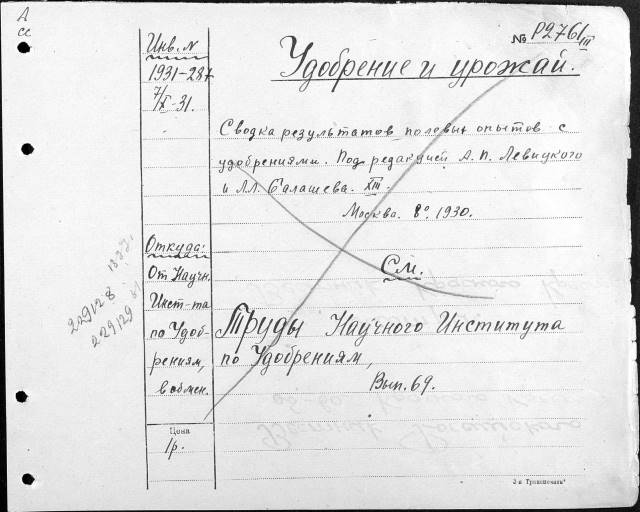 А
сс
Инв. N
1931-287
7/X-31.
№ Р276/III
Удобрение и урожай.
Сводка результатов полевых опытов с
удобрениями. Под редакцией А. П. Левицкого
и Л.Л. Балашева. XIII.
Москва. 8º. 1930.
Откуда:
От Научн.
Инст-та
по Удоб-
рениям,
в обмен.
См.
Труды Научного Института
по Удобрениям,
Вып. 69.
229128
229129
Цена
1р.